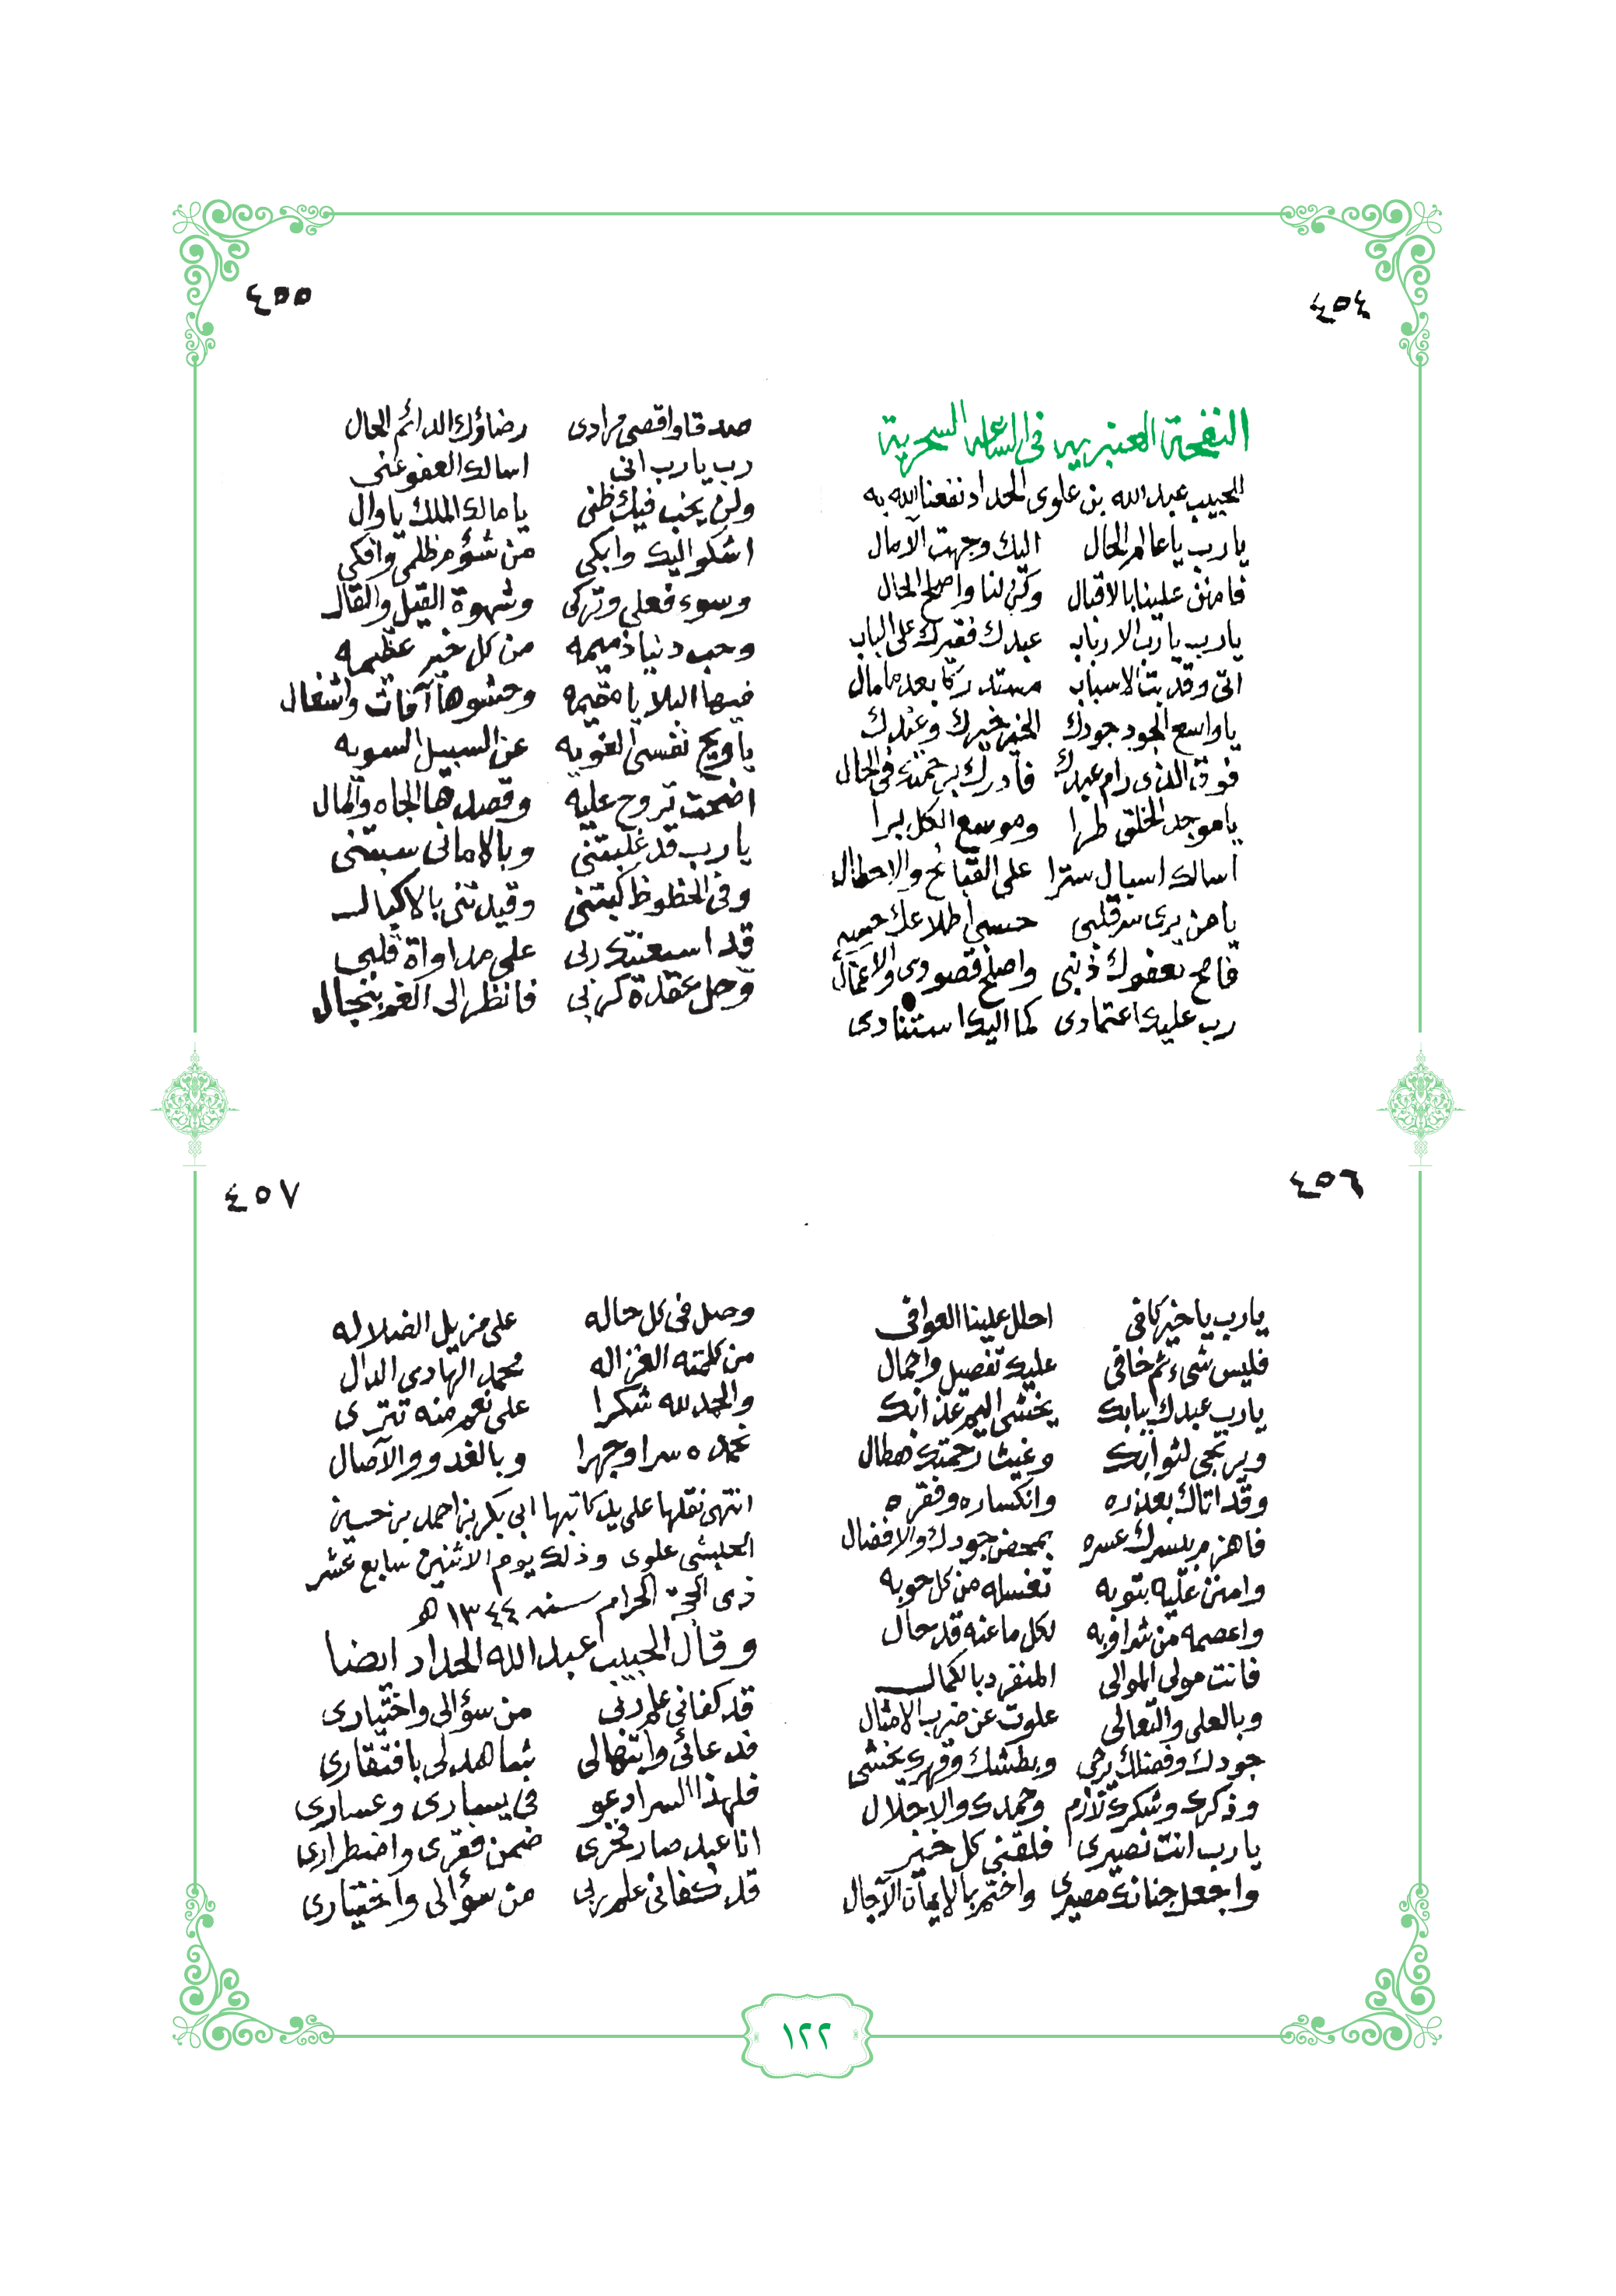 ٤٥٤
النفحة العنبريه في الساعه السحرية
للحبيب عبد الله بن علوى الحداد نفعنا الله به
يا رب يا عالم الحال اليك وجهت الآمال
فامنن علينا بالاقبال وكن لنا واصلح الحال
يا رب يا رب الارباب عبدك فقيرك على الباب
اتى وقد بت الاسباب مستدركا بعد ما مال
يا واسع الجود جودك الخير خيرك وعندك
فوق الذى رام عبدك فادرك برحمتك في الحال
يا موجد الخلق طرا وموسع الكل برا
اسالك اسبال سترا على القبائح والاخطال
يا من يرى سر قلبى حسبي اطلاعك حسبي
فامح بعفوك ذنبى واصلح قصودى والاعمال
رب عليك اعتمادى كما اليك استنادى
٤٥٥
صدقا واقصى مرادى رضاؤك الدائم الحال
رب يا رب انى اسالك العفو عنى
ولن يخب فيك ظنى يا مالك الملك يا وال
اشكو اليك وابكى من شؤم ظلمى وافكى
وسوء فعلى وتركى وشهوة القيل والقال
وحب دنيا ذميمه من كل خير عقيمه
فيها البلايا مقيمه وحشوها آفات واشغال
يا ويح نفسى الغويه عن السبيل السويه
اضحت تروح عليه وقصدها الجاه والمال
يا رب قد غلبتنى وبالامانى سبتنى
وفى الحظوظ كبتنى وقيدتنى بالاكبال
قد استعنتك ربى على مداواة قلبى
وحل عقدة كربى فانظر الى الغم ينجال
٤٥٦
يا رب يا خير كافى احلل علينا العوافى
فليس شىء ثم خافى عليك تفصيل واجمال
يا رب عبدك ببابك يخشى اليم عذابك
ويرتجى لثوابك وغيث رحمتك هطال
وقد اتاك بعذره وانكساره وفقره
فاهزم بيسرك عسره بمحض جودك والافضال
وامنن عليه بتوبه تغسله من كل حوبه
واعصمه من شر اوبه لكل ما عنه قد حال
فانت مولى الموالى المنفرد بالكمال
وبالعلى والتعالى علوت عن ضرب الامثال
جودك وفضلك يرجى وبطشك وقهرك يخشى
وذكرك وشكرك لازم وحمدك والاجلال
يا رب انت نصيرى فلقنى كل خير
واجعل جنانك مصيرى واختم بالايمان الآجال
٤٥٧
وصل فى كل حاله على مزيل الضلاله
من كلمته الغزاله محمد الهادى الدال
والحمد لله شكرا على نعم منه تترى
نحمده سرا وجهرا وبالغدو والآصال
انتهى نقلها على يد كاتبها ابى بكر بن احمد بن حسين
الحبشى علوى وذلك يوم الاثنين سابع عشر
ذى الحجة الحرام سنه ١٣٤٤ هـ
وقال الحبيب عبد الله الحداد ايضا
قد كفانى علم ربى من سؤالى واختيارى
فدعائى وابتهالى شاهد لى بافتقارى
فلهذا السر ادعو فى يسارى وعسارى
انا عبد صار فخرى ضمن فقرى واضطرارى
قد كفانى علم ربى من سؤالى واختيارى
١٢٢